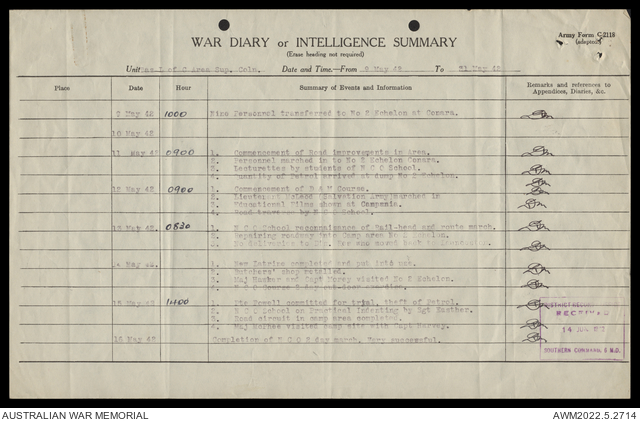 Army Form C2118
(adapted)
WAR DIARY or INTELLIGENCE SUMMARY
(Erase heading not required)
Unit L of C Area Sup. Coln. Date and Time.—From 2 May 42 To 31 May 42
Place Date Hour Summary of Events and Information Remarks and references to
Appendices, Diaries, &c.
2 May 42 1000 Nine Personnel transferred to No 2 Echelon at Conara.
10 May 42
11 May 42 0900 1. Commencement of Road improvements in Area.
2. Personnel marched in to No 2 Echelon Conara.
3. Lecturettes by students of N C O School.
4. quantity of Petrol arrived at dump No 2 Echelon.
12 May 42 0900 1. Commencement of Course.
2. Lieutenant McLeod (Salvation Army) marched in
3. Educational Films shown at Campania.
4. Road traverse by N C O School.
13 May 42. 0830 1. N C O School reconnaissance of Rail-head and route march.
2. Repairing roadway into Camp area No 2 Echelon.
3.
14 May 42. 1. New latrine completed and put into use.
2. Butchers' shop
3. Maj and Capt visited No 2 Echelon.
4. N C O Course 2 day
15 May 42 1400 1. Pte Powell committed for trial, theft of Petrol.
2. N C O School on Practical Indenting by Sgt
3. Road circuit in camp area completed.
4. Maj visited camp site with Capt Harvey.
16 May 42 Completion of N C O S day march. Very successful.
DISTRICT RECORDS
RECEIVED
14 JUN
SOUTHERN COMMAND
AUSTRALIAN WAR MEMORIAL
AWM2022.5.2714